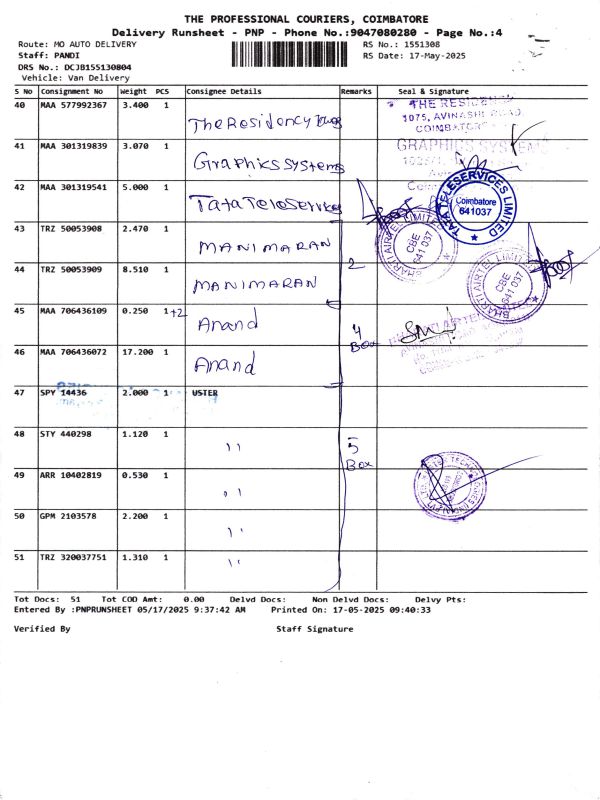 THE PROFESSIONAL COURIERS, COIMBATORE
Delivery Runsheet - PNP - Phone No.:9047080280 - Page No.:4
Route: MO AUTO DELIVERY
RS No.: 1551308
Staff: PANDI
RS Date: 17-May-2025
DRS No.: DCJB155130804
Vehicle: Van Delivery
S No Consignment No Weight PCS Consignee Details Remarks Seal & Signature
40 MAA 577992367 3.400 1 The Residency Towers
THE RESIDENCY
1075, AVINASHI ROAD,
COIMBATORE
41 MAA 301319839 3.070 1 Graphics Systems
GRAPHICS SYSTEMS
42 MAA 301319541 5.000 1 Tata Teleservices
TATA TELESERVICES LIMITED
Coimbatore
641037
43 TRZ 50053908 2.470 1 MANIMARAN
BHARTI AIRTEL LIMITED
CBE
641 037
44 TRZ 50053909 8.510 1 MANIMARAN 2
BHARTI AIRTEL LIMITED
CBE
641 037
45 MAA 706436109 0.250 1+2 Anand 4 Box
46 MAA 706436072 17.200 1 Anand
47 SPY 14436 2.000 1 USTER
48 STY 440298 1.120 1 " 5 Box
49 ARR 10402819 0.530 1 "
50 GPM 2103578 2.200 1 "
51 TRZ 320037751 1.310 1 "
Tot Docs: 51 Tot COD Amt: 0.00 Delvd Docs: Non Delvd Docs: Delvy Pts:
Entered By :PNPRUNSHEET 05/17/2025 9:37:42 AM Printed On: 17-05-2025 09:40:33
Verified By Staff Signature